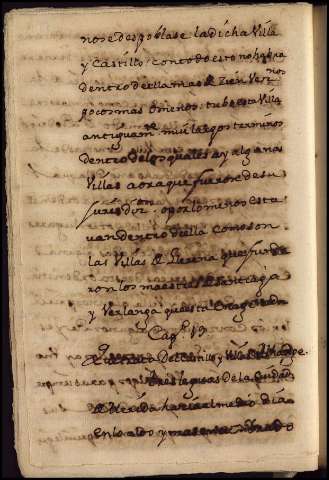 nose despoblase la dicha Villa
y Castillo: con todo esto no habra
dentro della mas de Zien Vezi nos
pocos mas o menos: tubo esta Villa
antiguam.te muj largos terminos
dentro de los quales ay algunas
Villas aora que fueron de su
jurisdiz.on o por lo menos esta
van dentro della como son
las Villas de Llerena que funda
ron los maestres de Santiago
y Verlanga questa
Cap.o 19
que trata Del Castillo y Villa de
tres leguas De la Ciudad
de Merida hazia el medio dia
en lo alto y mas